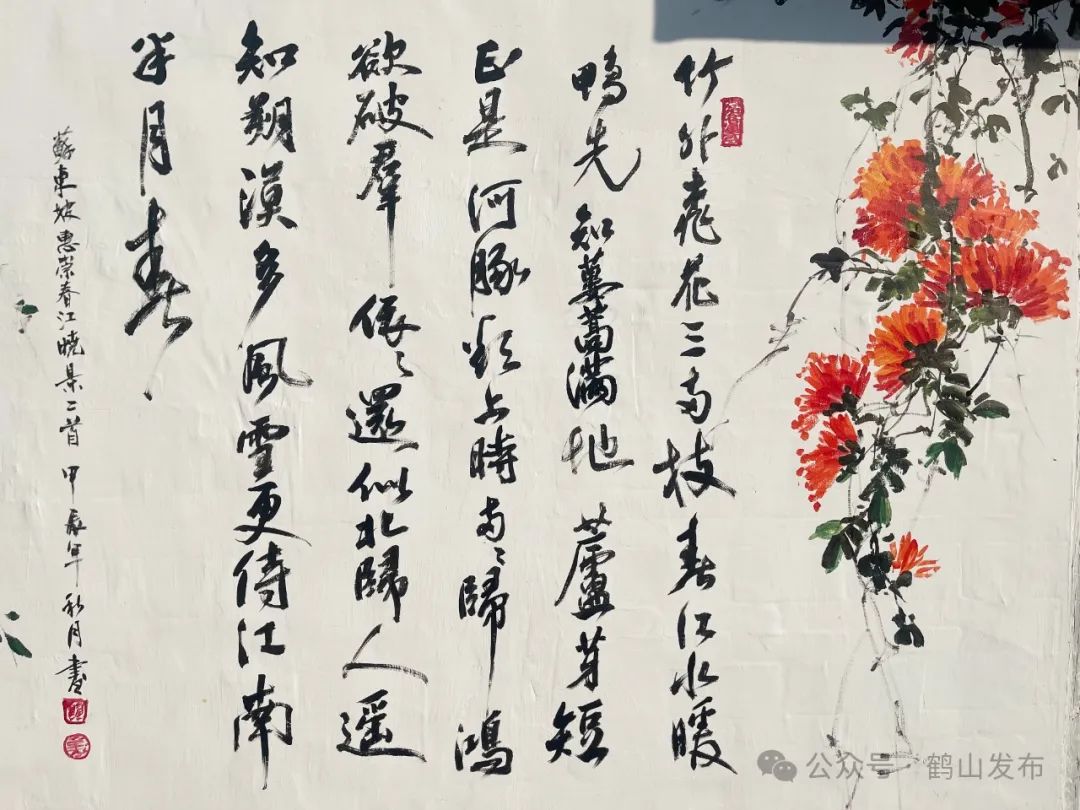 竹外桃花三兩枝春江水暖
鴨先知蔞蒿滿地蘆芽短
正是河豚欲上時兩〻歸鴻
欲破羣依〻還似北歸人遥
知朔漠多風雪更待江南
半月春
蘇東坡惠崇春江晓景二首 甲辰年秋月書
公众号 · 鹤山发布